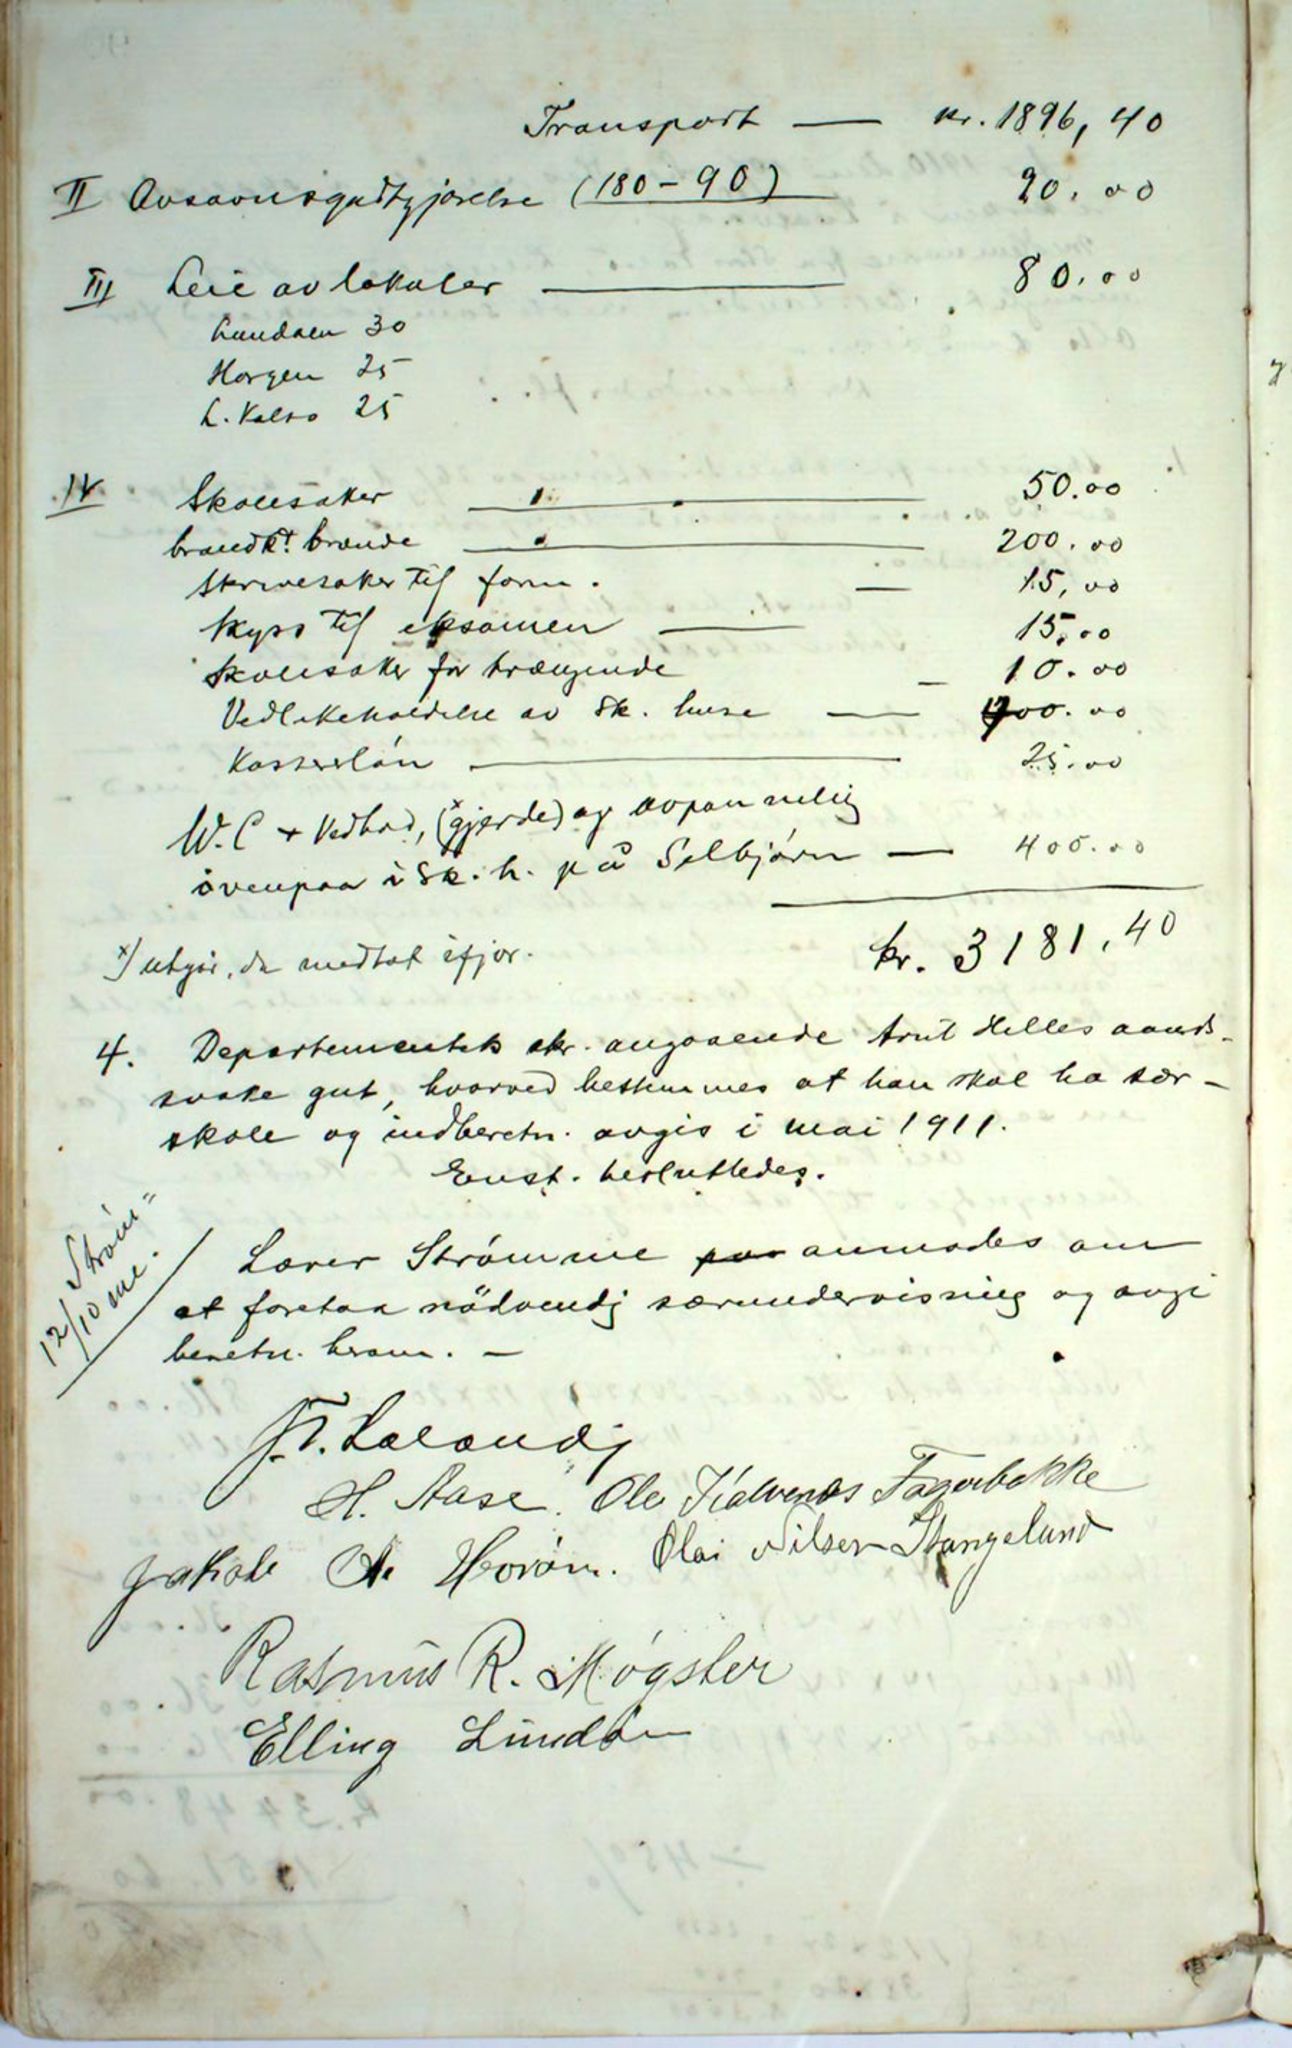 Transport — kr. 1896,40
II Avsavnsgodtgjørelse (180-90) 90.00
III Leie av lokaler — 80.00
Lundøen 30
Horgen 25
L. Kalsø 25
IV Skolesaker — 50.00
brandk. brænde — 200.00
Skrivesaker til form. — 15,00
Skyss til eksamen — 15,00
Skolesaker for trængende — 10.00
Vedlikeholdelse av sk. huse — 400.00
Kasserløn — 25.00
W.C + Vedbod, (x gjerde) og avpanneling
ovenpaa i sk. h. på Selbjørn — 400.00
kr. 3181,40
x) utgår, da medtat ifjor.
4. Departementets skr. angaaende Arnt Helles aands-
svake gut, hvorved bestemmes at han skal ha sær-
skole og indberetn. avgis i mai 1911.
Enst. besluttedes.
12/10 Strøm-
me.
Lærer Strømme anmodes om
at foreta nödvendig særundervisning og avgi
beretn. herom. —
H. Aase. Ole Kalvenes Fagerbakke
Jakob A. Horøen. Olai Nilsen Stangeland
Rasmus R. Møgster
Elling Lundøen